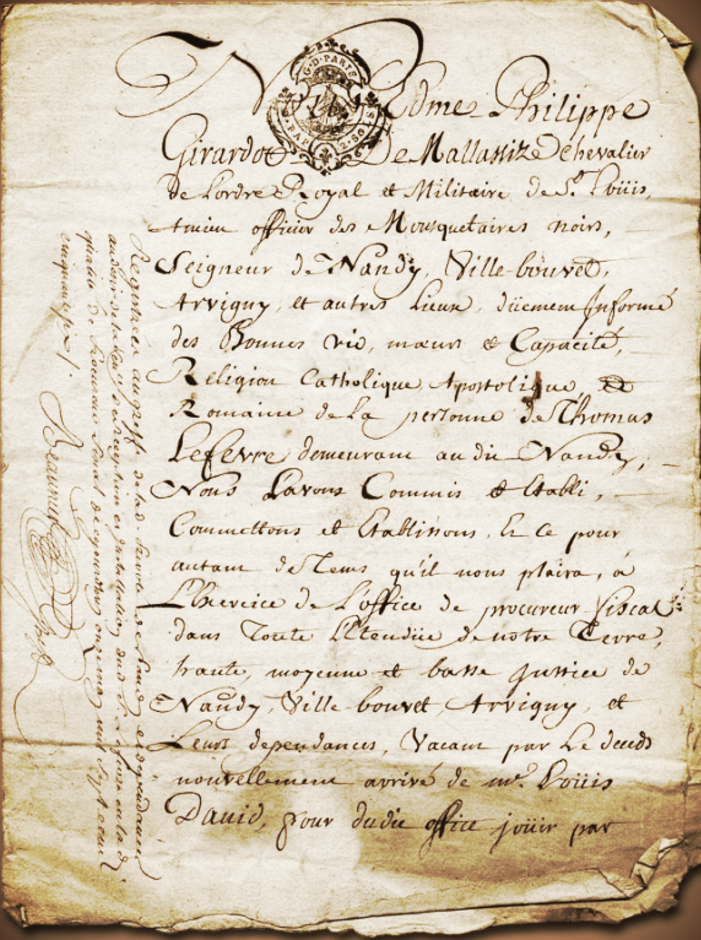 Nous Edme Philippe
G.D. PARIS
2. SOLS
Girardot De Mallassize Chevalier
de Lordre Royal et Militaire de St. Loüis,
Ancien officier des Mousquetaires noirs,
Seigneur de Nandy, Ville-bouvet,
Arvigny, et autres Lieux, düement Informé
des Bonnes vie, mœurs et Capacité,
Religion Catholique Apostolique, et
Romaine de La personne de Thomas
Lefevre demeurant au dit Nandy,
Nous Lavons Commis et Etabli,
Commettons et Etablissons, Et ce pour
autant de Tems qu'il nous plaira, à
L'Exercice de L'office de procureur fiscal
dans Toute L'Etendüe de notre Terre,
haute, moyenne et basse Justice de
Nandy, Ville-bouvet, Arvigny, et
Leurs dependances, Vacant par Le deceds
nouvellement arrivé de mr. Loüis
David, pour dudit office joüir par
Registrée au greffe de la